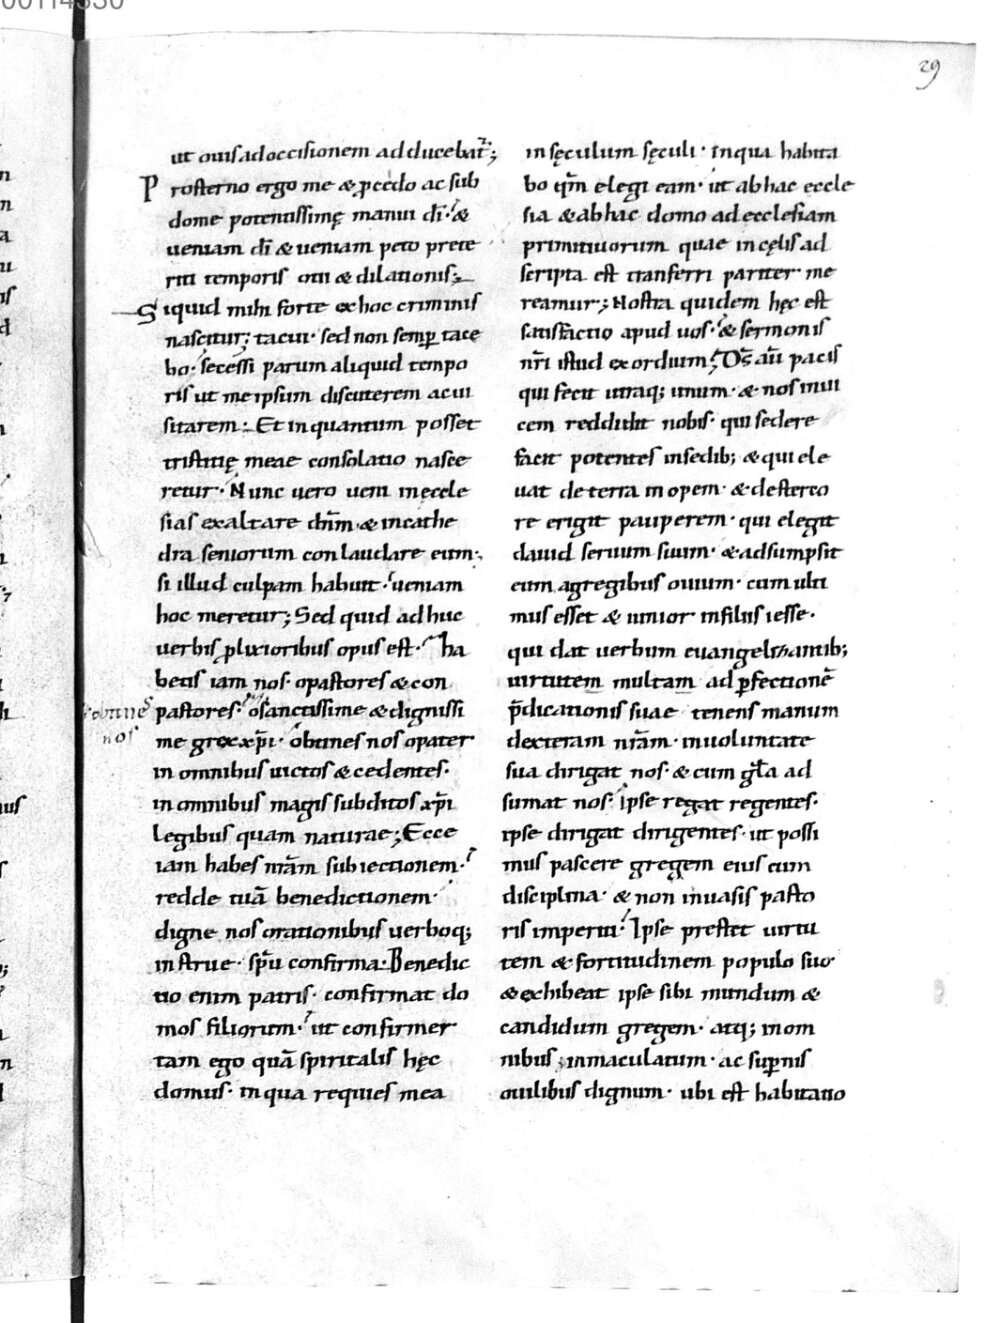 29
ut ouis ad occisionem adducebat᷑;
Prosterno ergo me & p̱cedo ac sub
dome potentissimę manui dī· &
ueniam dī & ueniam peto prete
riti temporis otii & dilationis;
Siquid mihi forte ex hoc criminis
nascitur; tacui· sed non semꝑ tace
bo· secessi parum aliquid tempo
ris ut me ipsum discuterem ac ui
sitarem: Et in quantum posset
tristitię meae consolatio nasce
retur· Nunc uero ueni in ęccle
sias exaltare dn̄m & in cathe
dra seniorum conlaudare eum·
si illud culpam habuit· ueniam
hoc meretur; Sed quid adhuc
uerbis plurioribus opus est· Ha
betis iam nos· o pastores & con
pastores· o sanctissime & dignissi
obtines
nos
me grex xp̄i· obtines nos o pater
in omnibus uictos & cedentes·
in omnibus magis subditos xp̄i
legibus quam naturae; Ecce
iam habes nr̄am subiectionem·
redde tuā benedictionem·
digne nos orationibus uerboq;
instrue· sp̄u confirma· Benedic
tio enim patris· confirmat do
mos filiorum· ut confirmer
tam ego quā spiritalis hęc
domus· in qua requies mea
in sęculum sęculi· in qua habita
bo qm̄ elegi eam· ut ab hac eccle
sia & ab hac domo ad ecclesiam
primitiuorum quae in cęlis ad
scripta est transferri pariter me
reamur; Nostra quidem hęc est
satisfactio apud uos· & sermonis
nr̄i istud exordium; Ds̄ au̅ pacis
qui fecit utraq; unum· & nos inui
cem reddidit nobis· qui sedere
facit potentes in sedib; & qui ele
uat de terra inopem· & de sterco
re erigit pauperem· qui elegit
dauid seruum suum· & adsumpsit
eum a gregibus ouium· cum ulti
mus esset & iunior in filiis iesse·
qui dat uerbum euangelizantib;
uirtutem multam ad ꝑfectionē
p̄dicationis suae tenens manum
dexteram nr̄am· in uoluntate
sua dirigat nos· & cum gl̄a ad
sumat nos· ipse regat regentes·
ipse dirigat dirigentes· ut possi
mus pascere gregem eius cum
disciplina· & non in uasis pasto
ris imperiti· Ipse prestet uirtu
tem & fortitudinem populo suo·
& exhibeat ipse sibi mundum &
candidum gregem· atq; in om
nibus inmaculatum· ac suꝑnis
ouilibus dignum· ubi est habitatio